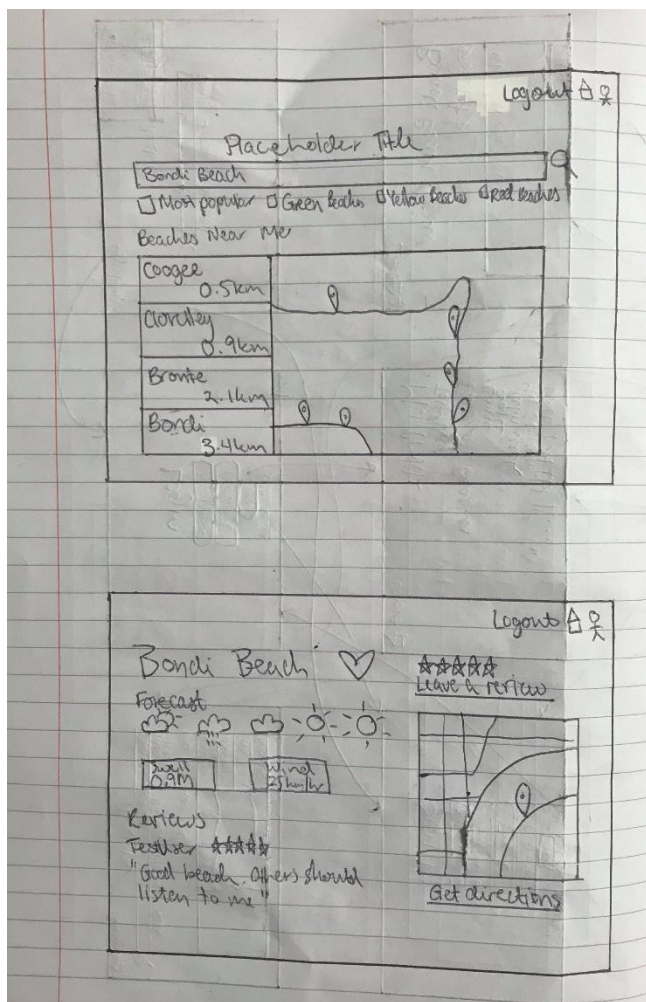 Logout
Placeholder Title
Bondi Beach
Most popular Green Beaches Yellow Beaches Red Beaches
Beaches Near Me
Coogee
0.5km
Clovelley
0.9km
Bronte
2.1km
Bondi
3.4km
Logout
Bondi Beach
Leave a review
Forecast
Swell
0.9M
Wind
25km/hr
Reviews
TestUser
"Good beach. Others should
listen to me"
Get directions